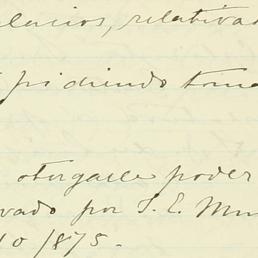 alacios, relativa
pidiendo toma
otorgarle poder
vado por S. E. Mu
10 1875.-